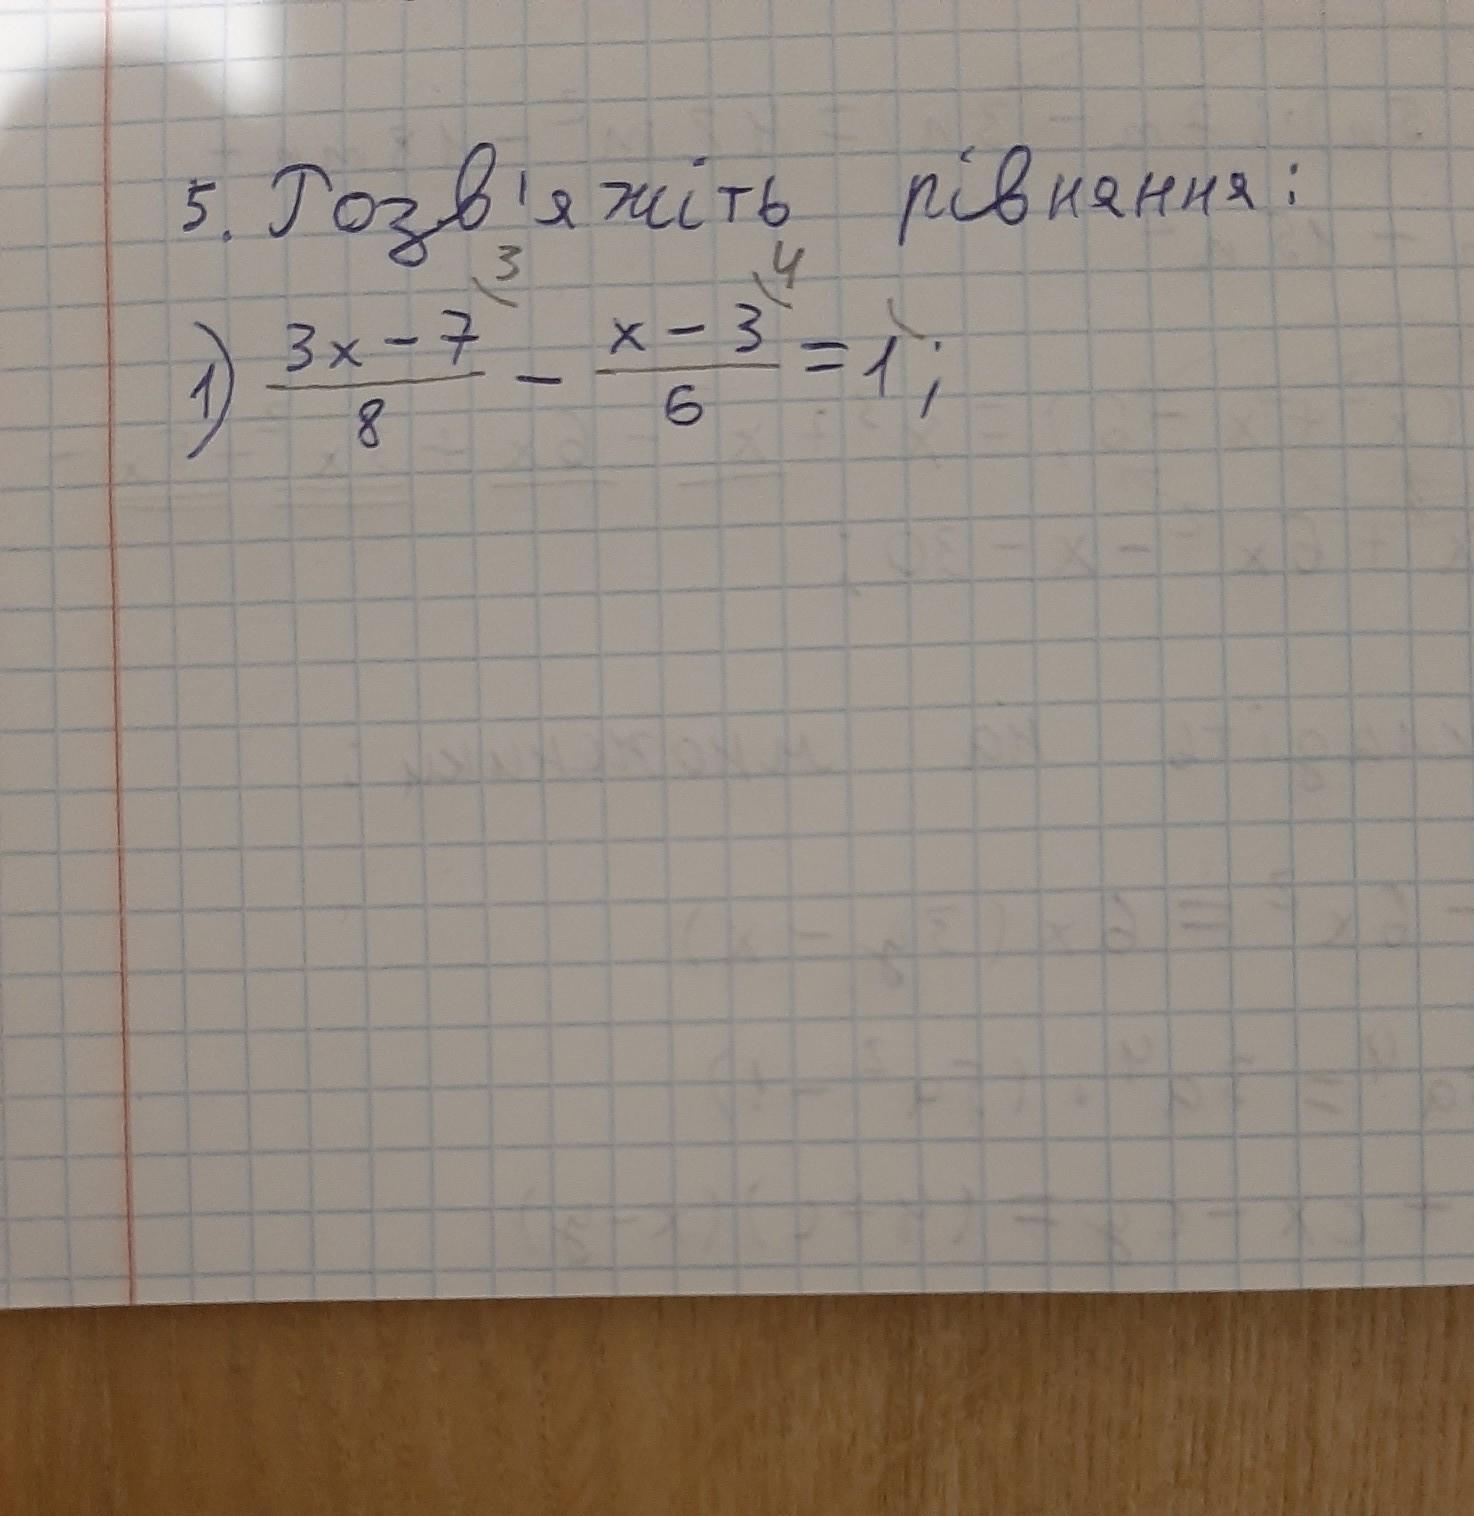 5. Розв'яжіть рівняння:
1) \frac{3x-7}{8}^{\3} - \frac{x-3}{6}^{\4} = 1^{\};